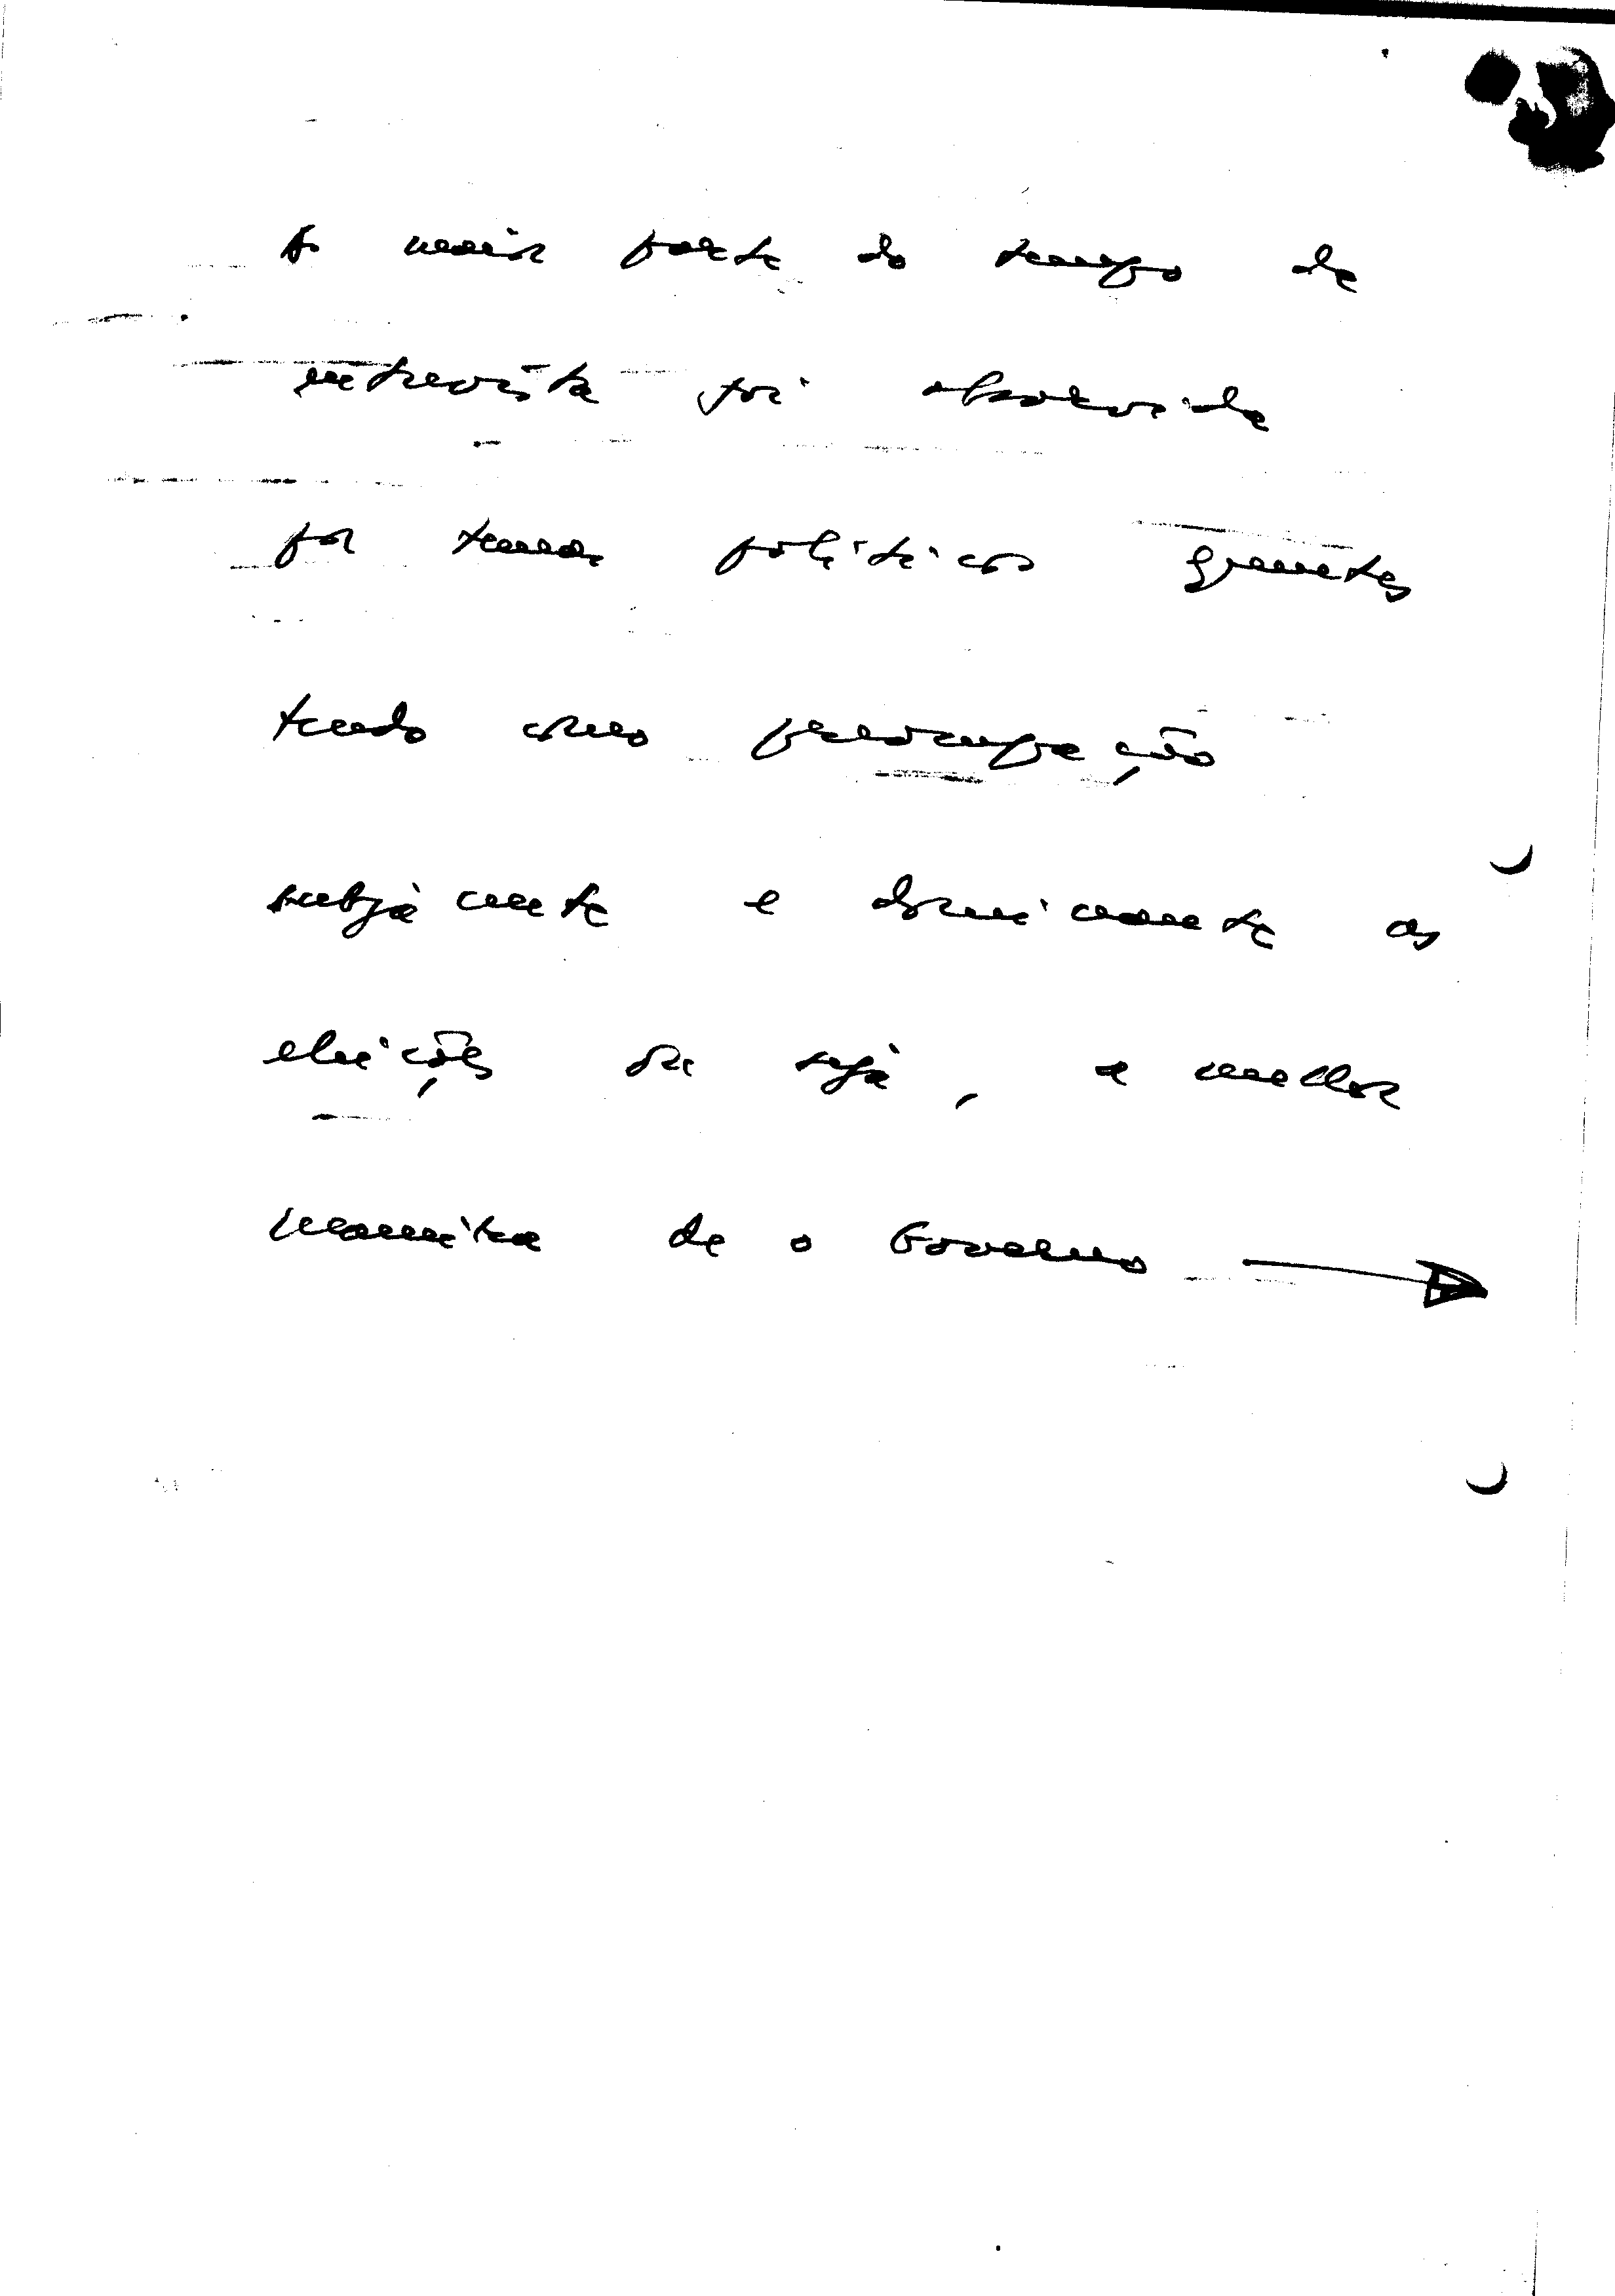 A maior parte do tempo da
entrevista foi absorvida
por temas políticos
tendo como preocupação
subjacente e dominante as
eleições ou seja, a melhor
maneira de o Governo